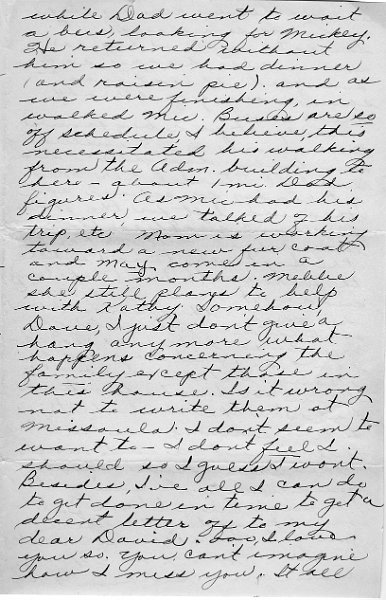 while Dad went to wait
a bus, looking for Mickey.
He returned without
him so we had dinner
(and raisin pie). and as
we were finishing, in
walked Mic. Buses are so
off schedule I believe, this
necessitated his walking
from the Adm. building to
here - about 1 mi. Dad
figures. As Mic had his
dinner, we talked of his
trip, etc. Mom is working
toward a new fur coat
and may come in a
couple months. Mebbe
she still plans to help
with Kathy. Somehow,
Dave, I just don't give a
hang any more what
happens concerning the
family except those in
this house. Is it wrong
not to write them at
Missoula. I dont seem to
want to - I dont feel I
should so I guess I wont.
Besides, I've all I can do
to get done in time to get a
decent letter off to my
dear David. I love
you so. You can't imagine
how I miss you. It all